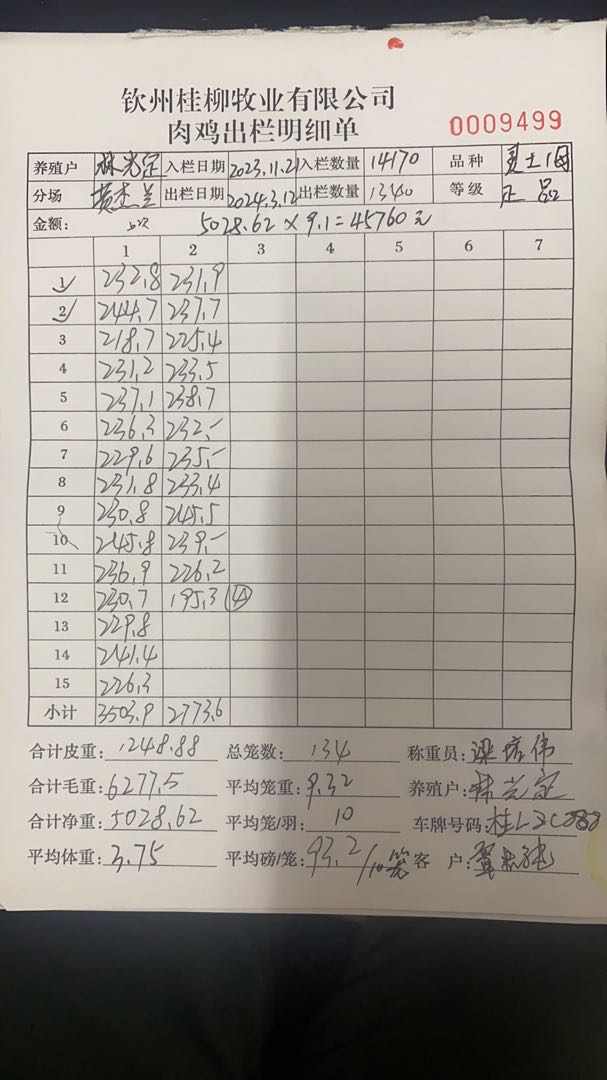 钦州桂柳牧业有限公司
肉鸡出栏明细单
0009499
养殖户 林光定 入栏日期 2023.11.21 入栏数量 14170 品种
分场 出栏日期 2024.3.12 出栏数量 1340 等级 正品
金额: 5028.62 × 9.1 = 45760元
1 2 3 4 5 6 7
1 232.8 231.9
2 244.7 237.7
3 218.7 225.4
4 231.2 233.5
5 237.1 238.7
6 236.3 232.-
7 229.6 235.-
8 231.8 233.4
9 230.8 245.5
10 245.8 239.-
11 236.9 226.2
12 230.7 195.3 ④
13 229.8
14 241.4
15 226.3
小计 3503.9 2773.6
合计皮重: 1248.88 总笼数: 134 称重员:
合计毛重: 6277.5 平均笼重: 9.32 养殖户: 林光定
合计净重: 5028.62 平均笼/羽: 10 车牌号码:
平均体重: 3.75 平均磅/笼: 93.2/10笼 客 户: